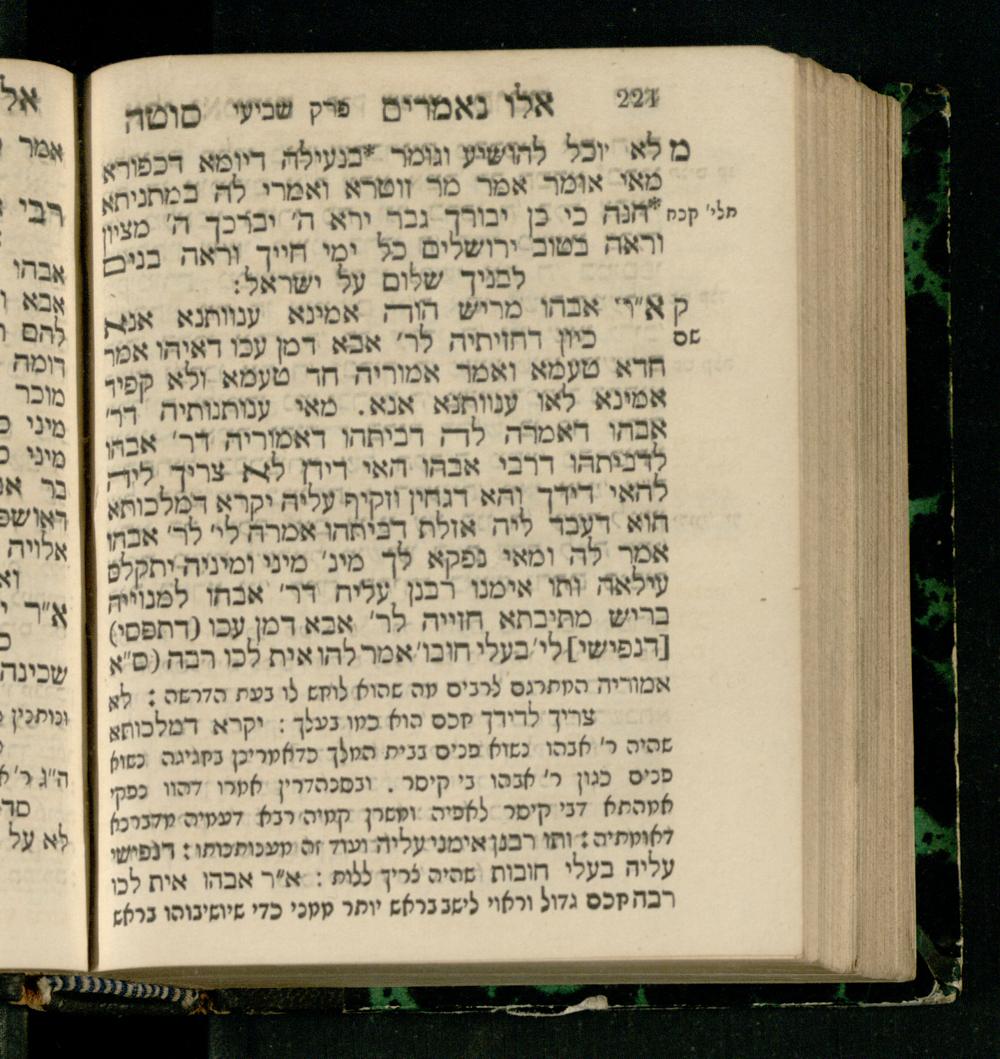 221 אלו נאמרים פרק שביעי סוטה
מ לא יוכל להושיע וגומר *בנעילה דיומא דכפורא
מאי אומר אמר מר זוטרא ואמרי לה במתניתא
תלי' קכח *הנה כי כן יבורך גבר ירא ה' יברכך ה' מציון
וראה בטוב ירושלים כל ימי חייך וראה בנים
לבניך שלום על ישראל:
ק א"ר אבהו מריש הוה אמינא ענוותנא אנא
שם כיון דחזיתיה לר' אבא דמן עכו דאיהו אמר
חדא טעמא ואמר אמוריה חד טעמא ולא קפיד
אמינא לאו ענוותנא אנא. מאי ענותנותיה דר'
אבהו דאמרה לה דביתהו דאמוריה דר' אבהו
לדביתהו דרבי אבהו האי דידן לא צריך ליה
להאי דידך והא דגחין וזקיף עליה יקרא דמלכותא
הוא דעבד ליה אזלת דביתהו אמרה לי' לר' אבהו
אמר לה ומאי נפקא לך מינ' מיני ומיניה יתקלס
עילאה ותו אימנו רבנן עליה דר' אבהו למנוייה
בריש מתיבתא חזייה לר' אבא דמן עכו (דתפסי)
[דנפישי] לי' בעלי חובו' אמר להו אית לכו רבה (ס"א
אמוריה המתרגם לרבים מה שהוא לוחש לו בעת הדרשה : לא
צריך לדידך חכם הוא כמו בעלך : יקרא דמלכותא
שהיה ר' אבהו נשוא פנים בבית המלך כדאמרינן בחגיגה נשוא
פנים כגון ר' אבהו בי קיסר . ובסנהדרין אמרו דהוו נפקי
אמהתא דבי קיסר לאפיה ומשרן קמיה רבא דעמיה מדברנא
דאומתיה : ותו רבנן אימני עליה ועוד זה מענותנותו : דנפישי
עליה בעלי חובות שהיה צריך ללות : א"ר אבהו אית לכו
רבה חכם גדול וראוי לישב בראש יותר ממני כדי שיושיבוהו בראש